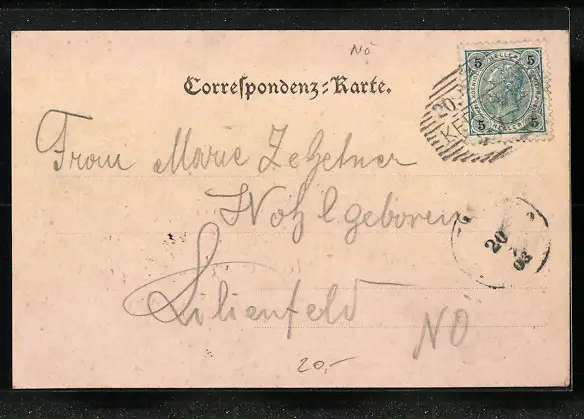 NÖ
Correspondenz-Karte.
5 5
5 5
20.
KE
Frau Marie Zehetner
Wohlgeboren
20
03
Lilienfeld
NÖ
20,-